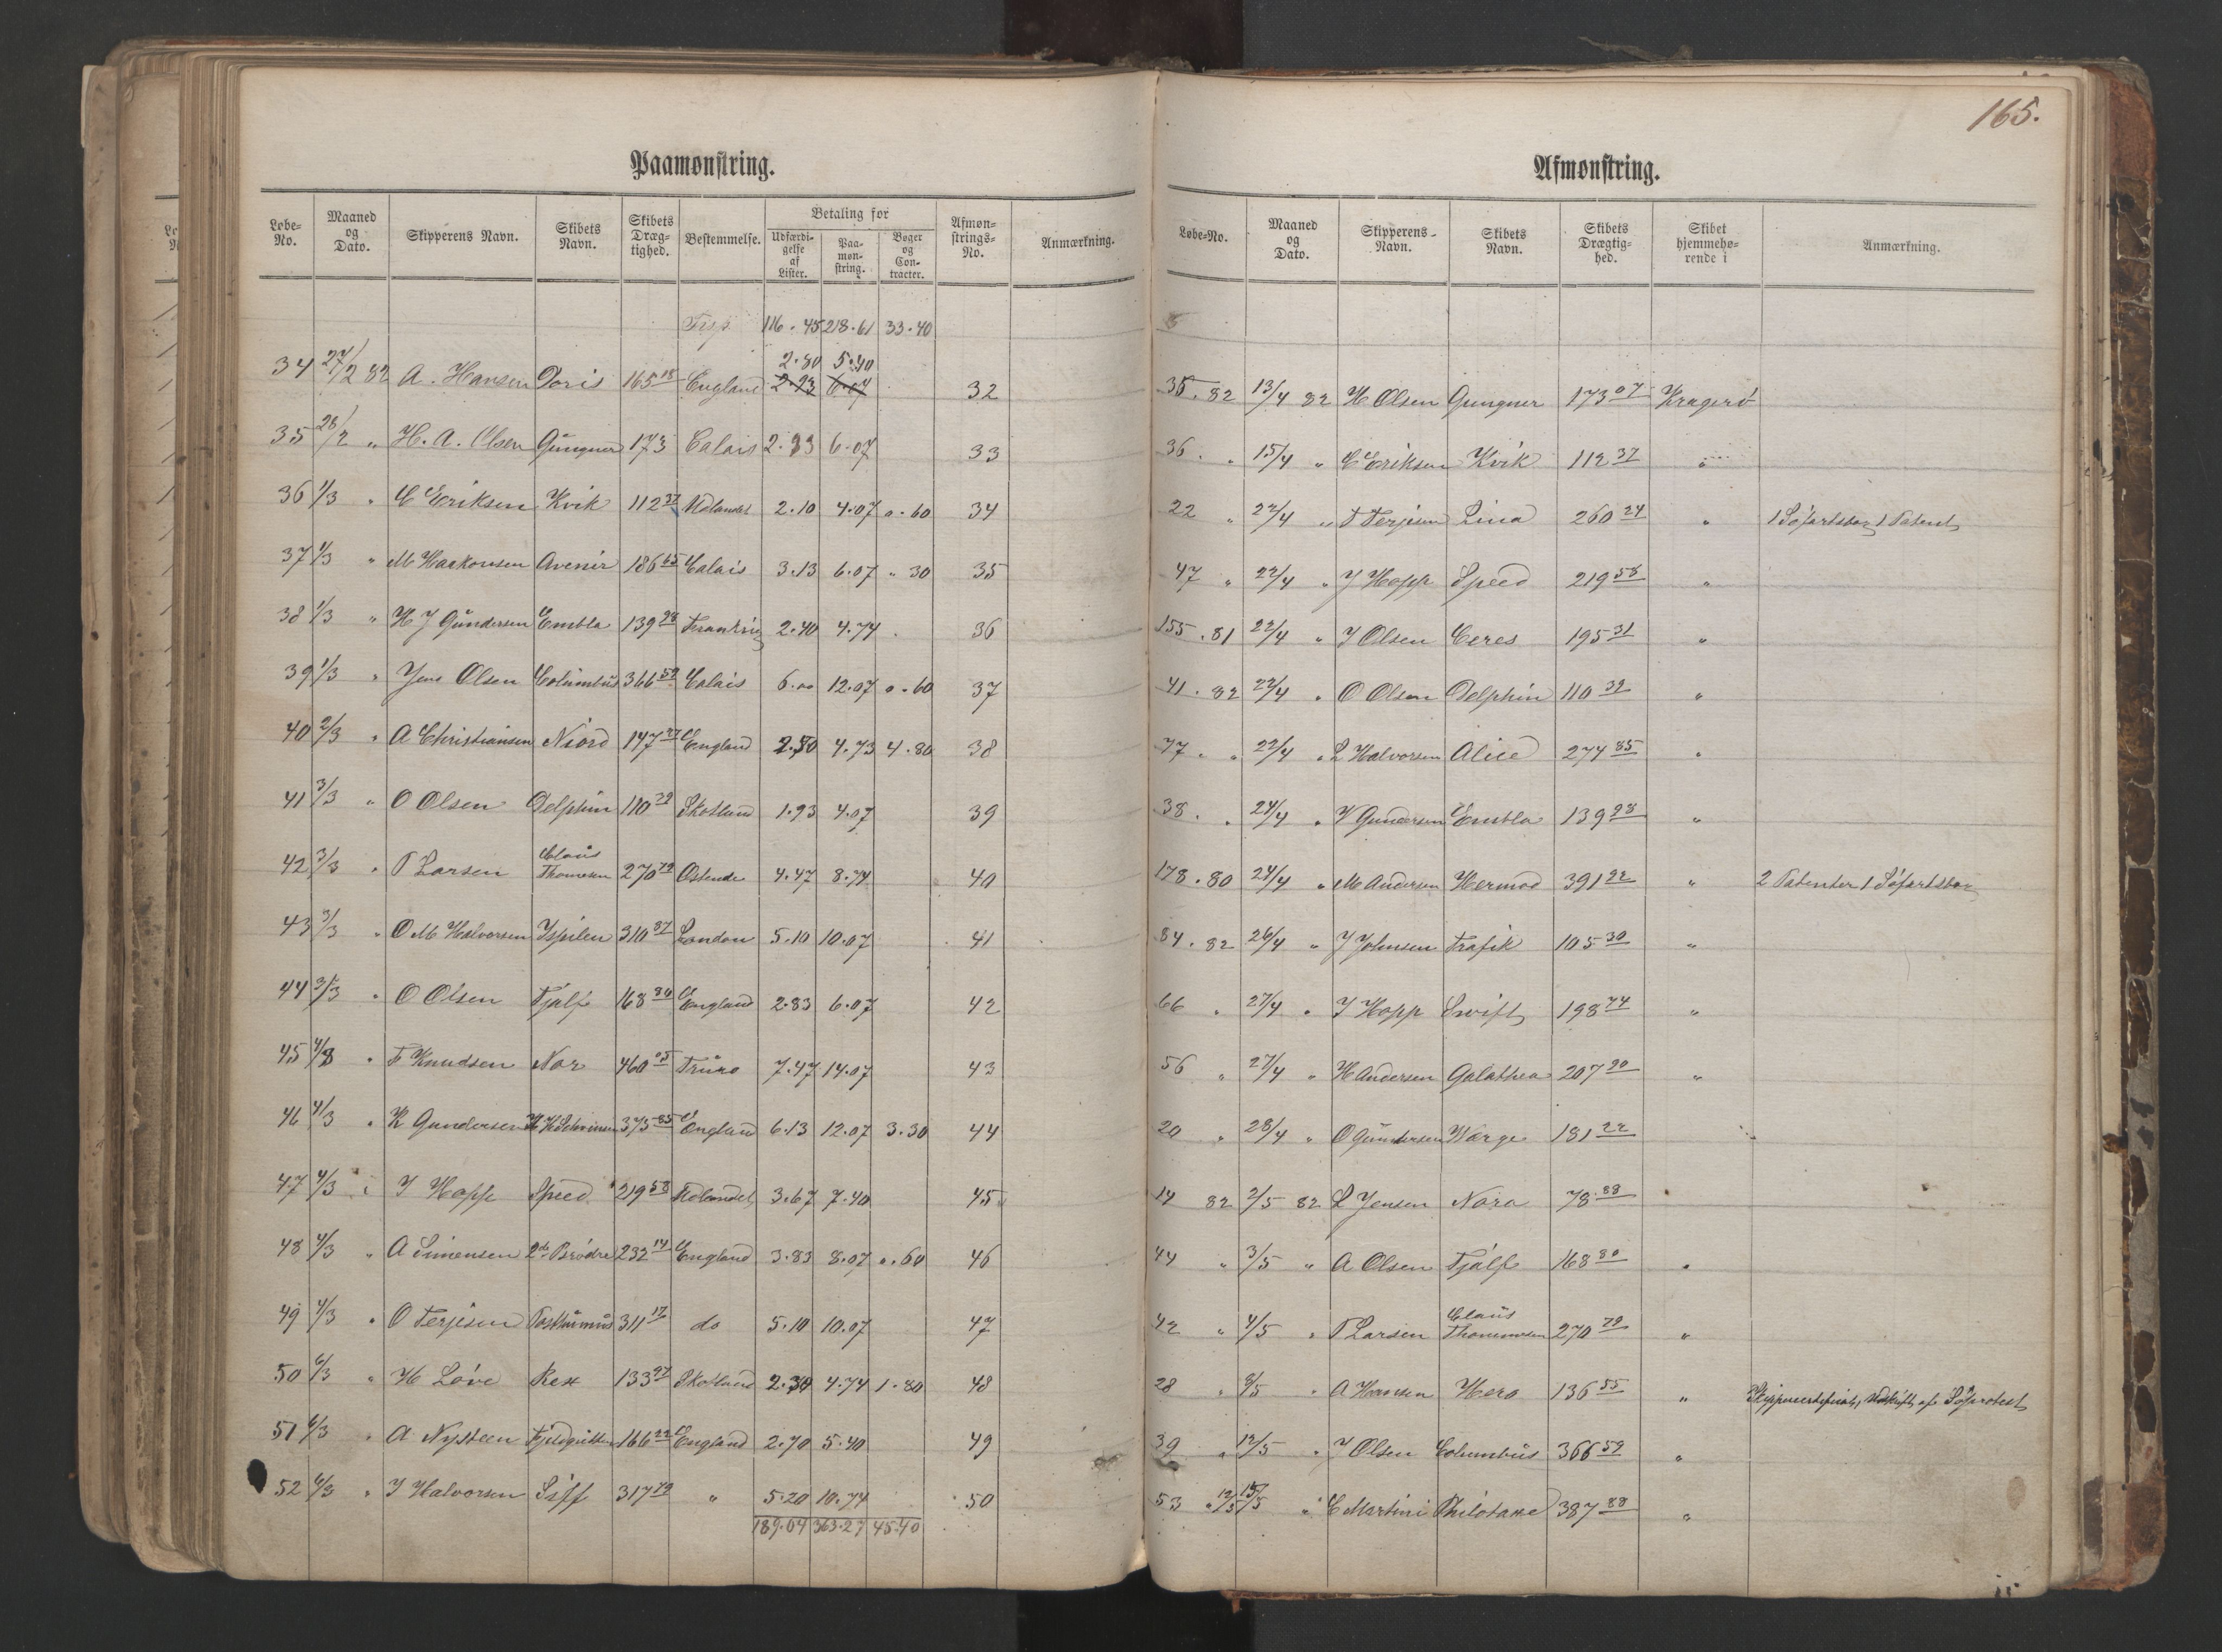 165.
Paamønstring.
Løbe-No. Maaned og Dato. Skipperens Navn. Skibets Navn. Skibets Dræg-tighed. Bestemmelse. Betaling for Udfærdi-gelse af Lister. Paa-møn-string. Bøger og Con-tracter. Afmøn-strings-No. Anmærkning.
116.45 218.61 33.40
2.80 5.40
34 27/2 82 A. Hansen Doris 165 18 England 2.93 6.07 32
35 28/2 " H. A. Olsen Gungner 173 Calais 2.93 6.07 33
36 1/3 " C Eriksen Kvik 112 37 Udlandet 2.10 4.07 0.60 34
37 1/3 " M Haakonsen Avenir 186 65 Calais 3.13 6.07 " 30 35
38 1/3 " H J Gundersen Embla 139 28 Frankrig 2.40 4.74 36
39 1/3 " Jens Olsen Columbus 366 59 Calais 6.00 12.07 0.60 37
40 2/3 " A Christiansen Niord 147 27 England 2.50 4.73 4.80 38
41 3/3 " O Olsen Delphin 110 39 Skotland 1.93 4.07 39
42 3/3 " T Larsen Claus Thomesen 270 79 Ostende 4.47 8.74 40
43 3/3 " O M Halvorsen Ispilen 310 37 London 5.10 10.07 41
44 3/3 " O Olsen Fjalf 168 80 England 2.83 6.07 42
45 4/3 " F Knudsen Nor 460 05 Truro 7.47 14.07 43
46 4/3 " K Gundersen 375 85 England 6.13 12.07 3.30 44
47 4/3 " J Hopp Speed 219 58 Udlandet 3.67 7.40 45
48 4/3 " A Simensen 2de Brødre 232 14 England 3.83 8.07 0.60 46
49 4/3 " O Terjesen Posthumus 311 17 do 5.10 10.07 47
50 6/3 " H Løve Rex 133 97 Skotland 2.30 4.74 1.80 48
51 6/3 " A Nysteen 166 22 England 2.70 5.40 49
52 6/3 " J Halvorsen Siff 317 79 " 5.20 10.74 50
189.04 363.27 45.40
Afmønstring.
Løbe-No. Maaned og Dato. Skipperens-Navn. Skibets Navn. Skibets Drægtig-hed. Skibet hjemmehø-rende i Anmærkning.
35.82 13/4 82 H Olsen Gungner 173 07 Kragerø
36. " 15/4 " C Eriksen Kvik 112 37 "
22 " 22/4 " T Terjesen Lina 260 24 " 1 Søfartsbog 1 Patent
47 " 22/4 " J Hopp Speed 219 58 "
155.81 22/4 " J Olsen Ceres 195 31 "
41.82 22/4 " O Olsen Delphin 110 39 "
77 " 22/4 " L Halvorsen Alice 274 85 "
38. " 24/4 " J Gundersen Embla 139 28 "
178.80 24/4 " M Andersen Hermod 391 22 " 2 Patenter 1 Søfartsbog
84.82 26/4 " J Johnsen Trafik 105 30 "
66 " 27/4 " J Hopp Swift 198 74 "
56 " 27/4 " H Andersen Galathea 207 90 "
20 " 28/4 " O Gundersen Varge 181 22 "
14 82 2/5 82 L Jensen Nora 78 88 "
44 " 3/5 " A Olsen Fjalf 168 80 "
42 " 4/5 " T Larsen Claus Thommesen 270 79 "
28 " 8/5 " A Hansen Hero 136 55 " Skippercertificat, Udskrift af Søprotest
39 " 12/5 " J Olsen Columbus 366 59 "
53 " 12/5 15/5 " C Martini Philotaxe 387 88 "